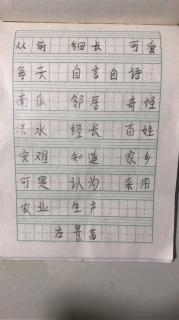 从前 细长 可爱
每天 自言自语
南瓜 邻居 奇怪
洪水 经长 百姓
灾难 知道 家乡
可是 认为 采用
农业 生产